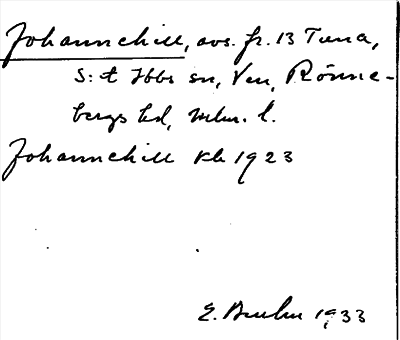 Johannehill, avs. fr. 13 Tuna,
S:t Ibbs sn, Ven, Rönne-
bergs hd, Mlm. l.
Johannehill Kb 1923
E. Bruhn 1933